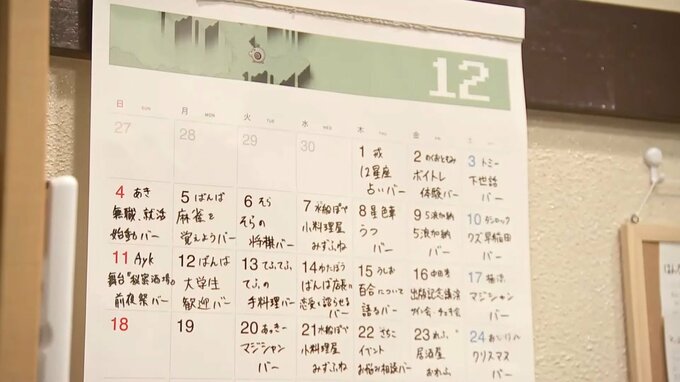 12
日 SUN 月 MON 火 TUE 水 WED 木 THU 金 FRI 土
27 28 29 30
1 戒
12星座
占いバー
2 わくおともみ
ボイトレ
体験バー
3 トミー
下世話
バー
4 あき
無職、就活
始動バー
5 ばんば
麻雀を
覚えようバー
6 そら
そらの
将棋バー
7 水船ぽで
小料理屋
みずふね
8 星色車
うつ
バー
9 5浪加納
5浪加納
バー
10
クズ早稲田
バー
11 Ayk
舞台『秘密酒場』
前夜祭バー
12 ばんば
大学生
歓迎バー
13 てふてふ
てふの
手料理バー
14 わたぼう
ばんば店長の
恋愛を語らせるバー
15 うしお
百合について
語るバー
16
出版記念講演
サイン会・チェキ会
17
マジシャン
バー
18
19
20 あっきー
マジシャン
バー
21 水船ぽで
小料理屋
みずふね
22 さちこ
イベント
お悩み相談バー
23 れふ
居酒屋
おれふ
24
クリスマス
バー